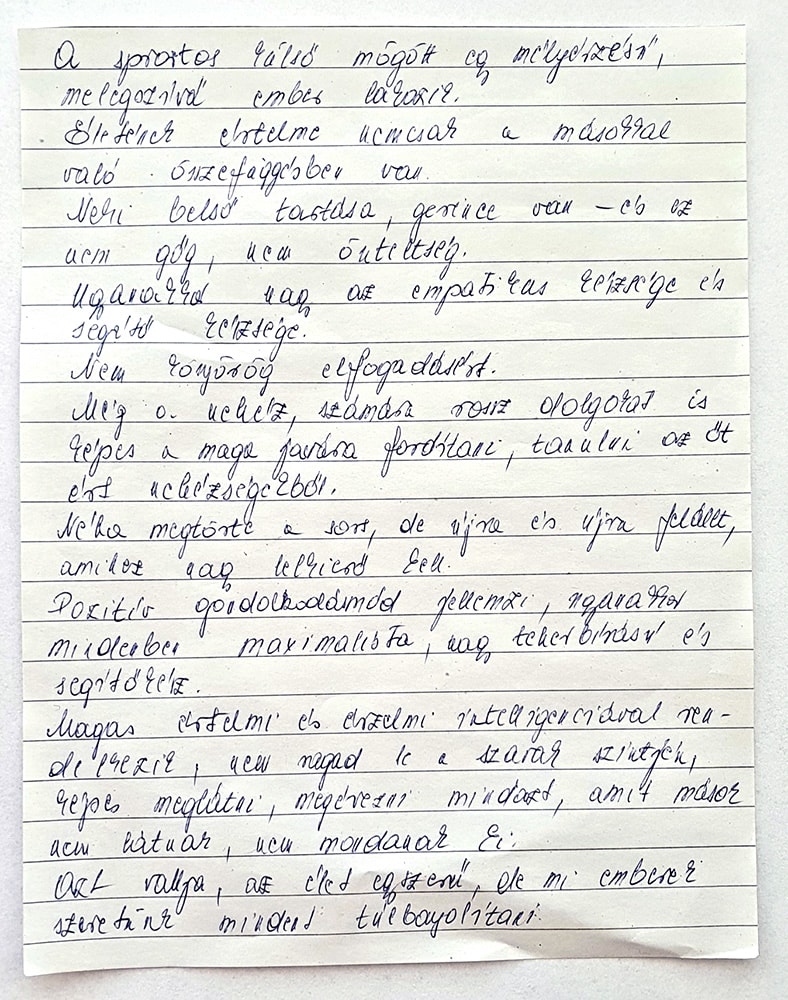 A sportos külső mögött egy mélyérzésű,
melegszívű ember lakozik.
Életének értelme nemcsak a másokkal
való összefüggésben van.
Neki belső tartása, gerince van – és ez
nem gőg, nem önteltség.
Ugyanakkor nagy az empatikus készsége és
segítő készsége.
Nem könyörög elfogadásért.
Még a nehéz, számára rossz dolgokat is
képes a maga javára fordítani, tanulni az őt
ért nehézségekből.
Néha megtörte a sors, de újra és újra felállt,
amihez nagy lelkierő kell.
Pozitív gondolkodásmód jellemzi, ugyanakkor
mindenben maximalista, nagy teherbírású és
segítőkész.
Magas értelmi és érzelmi intelligenciával ren-
delkezik, nem ragad le a szavak szintjén,
képes meglátni, megérezni mindazt, amit mások
nem látnak, nem mondanak ki.
Azt vallja, az élet egyszerű, de mi emberek
szeretünk mindent túlbonyolítani.